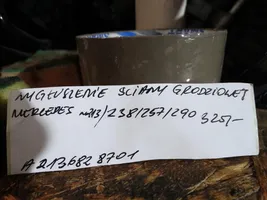 WYGŁUSZENIE ŚCIANY GRODZIOWEJ
MERCEDES W213/238/257/290 325,-
A2136828701